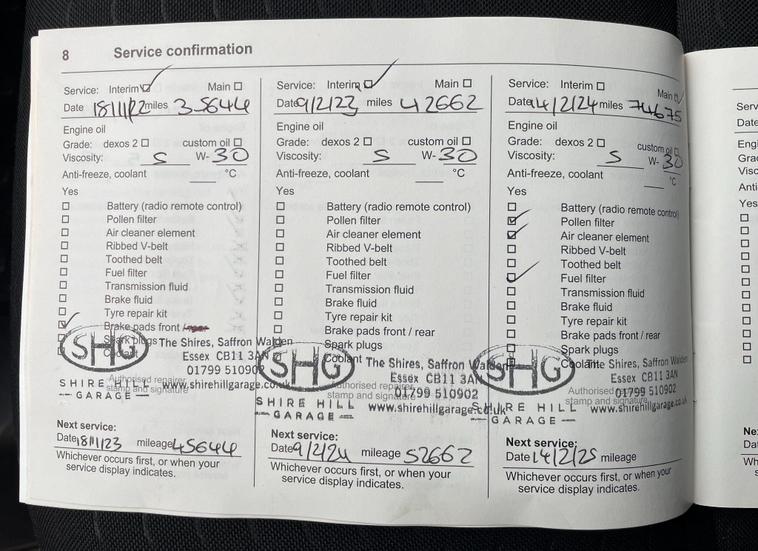 8 Service confirmation
Service: Interim Main
Date 18/11/22 miles 35644
Engine oil
Grade: dexos 2 custom oil
Viscosity: 5 W- 30
Anti-freeze, coolant °C
Yes
Battery (radio remote control)
Pollen filter
Air cleaner element
Ribbed V-belt
Toothed belt
Fuel filter
Transmission fluid
Brake fluid
Tyre repair kit
Brake pads front /
Spark plugs
SHG
SHIRE HILL
GARAGE
The Shires, Saffron Walden
Essex CB11 3AN
01799 510902
www.shirehillgarage.co.uk
Authorised repairer
stamp and signature
Next service:
Date 18/11/23 mileage 45644
Whichever occurs first, or when your
service display indicates.
Service: Interim Main
Date 9/2/23 miles 42662
Engine oil
Grade: dexos 2 custom oil
Viscosity: 5 W- 30
Anti-freeze, coolant °C
Yes
Battery (radio remote control)
Pollen filter
Air cleaner element
Ribbed V-belt
Toothed belt
Fuel filter
Transmission fluid
Brake fluid
Tyre repair kit
Brake pads front / rear
Spark plugs
Coolant
SHG
SHIRE HILL
GARAGE
The Shires, Saffron Walden
Essex CB11 3AN
01799 510902
www.shirehillgarage.co.uk
Authorised repairer
stamp and signature
Next service:
Date 9/2/24 mileage 52662
Whichever occurs first, or when your
service display indicates.
Service: Interim Main
Date 14/2/24 miles 74675
Engine oil
Grade: dexos 2 custom oil
Viscosity: 5 W- 30
Anti-freeze, coolant °C
Yes
Battery (radio remote control)
Pollen filter
Air cleaner element
Ribbed V-belt
Toothed belt
Fuel filter
Transmission fluid
Brake fluid
Tyre repair kit
Brake pads front / rear
Spark plugs
Coolant
SHG
SHIRE HILL
GARAGE
The Shires, Saffron Walden
Essex CB11 3AN
01799 510902
www.shirehillgarage.co.uk
Authorised
stamp and signature
Next service:
Date 14/2/25 mileage
Whichever occurs first, or when your
service display indicates.